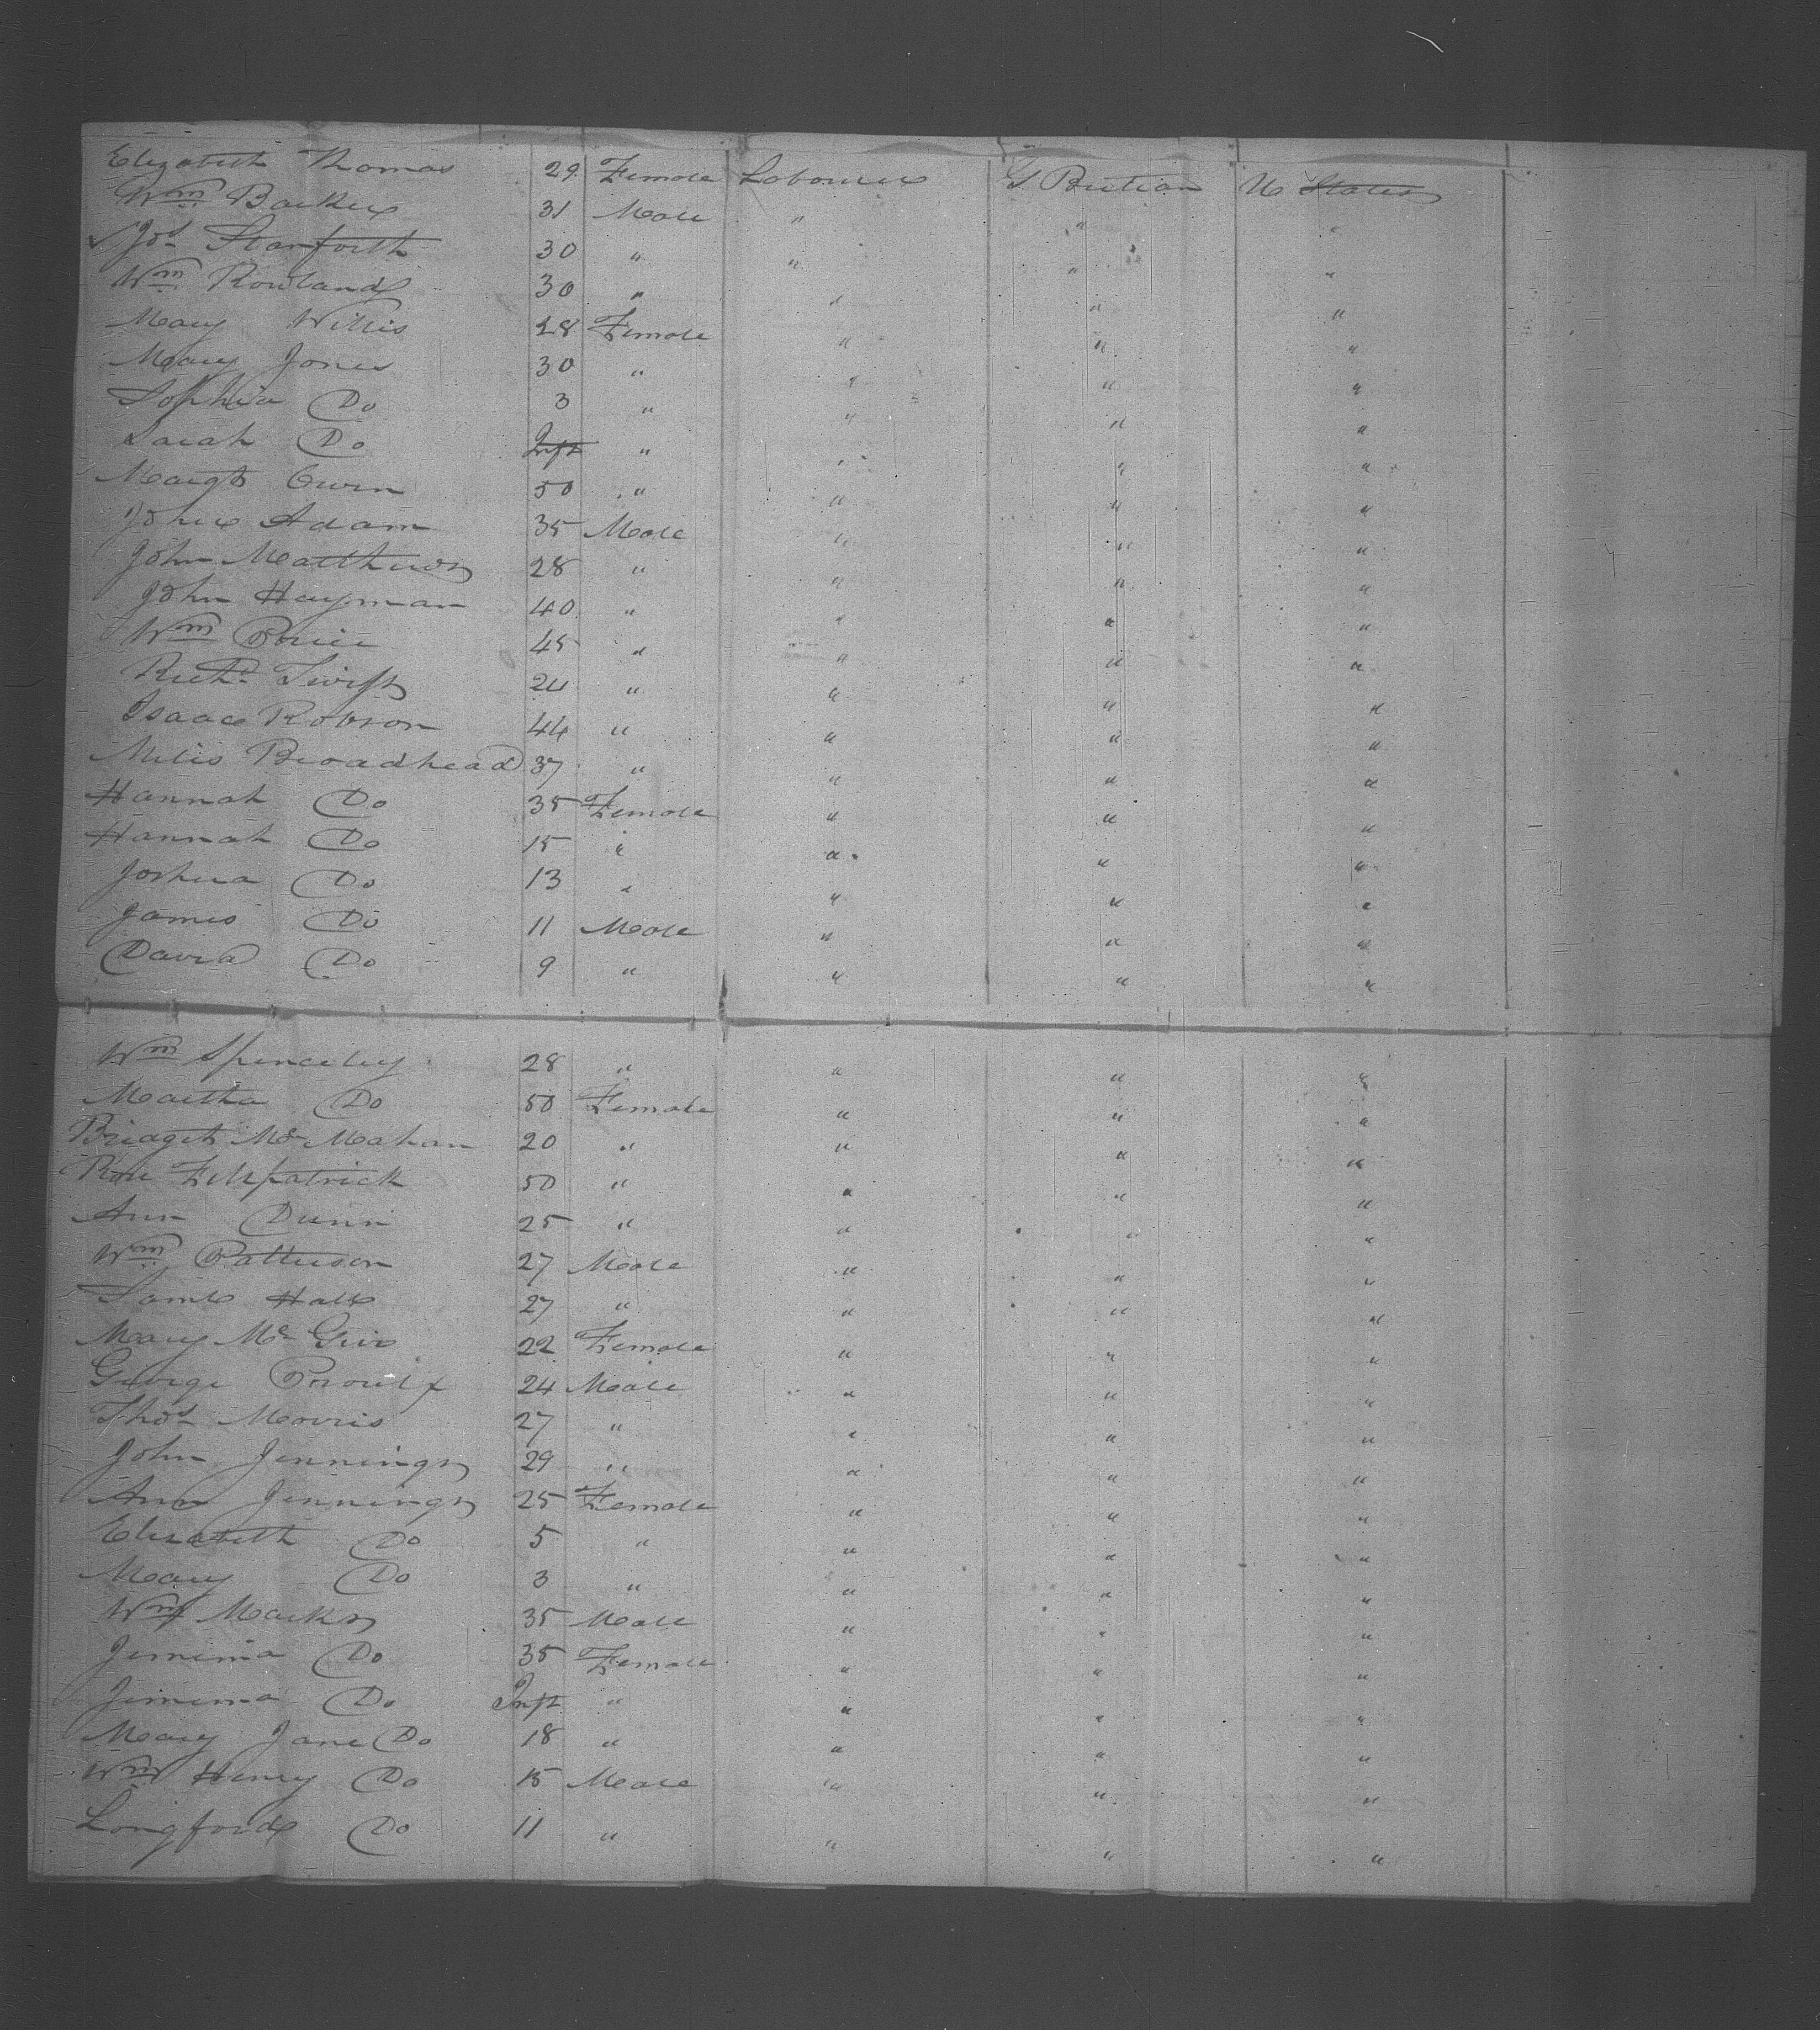 Elizabeth Thomas 29 Female Labourer G Britian U States
Wm Barker 31 Male " " "
Jos Stanforth 30 " " " "
Wm Rowland 30 " " " "
Mary Willis 28 Female " " "
Mary Jones 30 " " " "
Sophia Do 3 " " " "
Sarah Do Inft " " " "
Margt Owen 50 " " " "
John Adam 35 Male " " "
John Matthews 28 " " " "
John Hayman 40 " " " "
Wm Price 45 " " " "
Richd Swift 24 " " " "
Isaac Robson 44 " " " "
Miles Broadhead 37 " " " "
Hannah Do 35 Female " " "
Hannah Do 15 " " " "
Joshua Do 13 " " " "
James Do 11 Male " " "
David Do 9 " " " "
Wm Spenceley 28 " " " "
Martha Do 50 Female " " "
Bridget Mc Mahan 20 " " " "
Rose Fitzpatrick 50 " " " "
Ann Dunn 25 " " " "
Wm Patterson 27 Male " " "
Saml Hall 27 " " " "
Mary Mc Guir 22 Female " " "
George 24 Male " " "
Thos Morris 27 " " " "
John Jennings 29 " " " "
Ann Jennings 25 Female " " "
Elizabeth Do 5 " " " "
Mary Do 3 " " " "
Wm Marks 35 Male " " "
Jemima Do 35 Female " " "
Jemima Do Inft " " " "
Mary Jane Do 18 " " " "
Wm Henry Do 15 Male " " "
Longford Do 11 " " " "